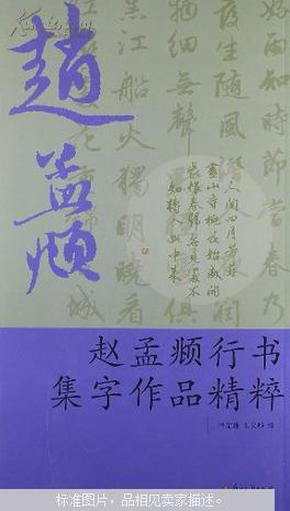 趙孟頫
好雨知時節當春乃
發生隨風潛入夜潤
物細無聲野徑雲俱
黑江船火獨明曉看
人間四月芳菲
盡山寺桃花始盛開
長恨春歸無覓處不
知轉入此中來
赵孟頫行书
集字作品精粹
标准图片，品相见卖家描述。